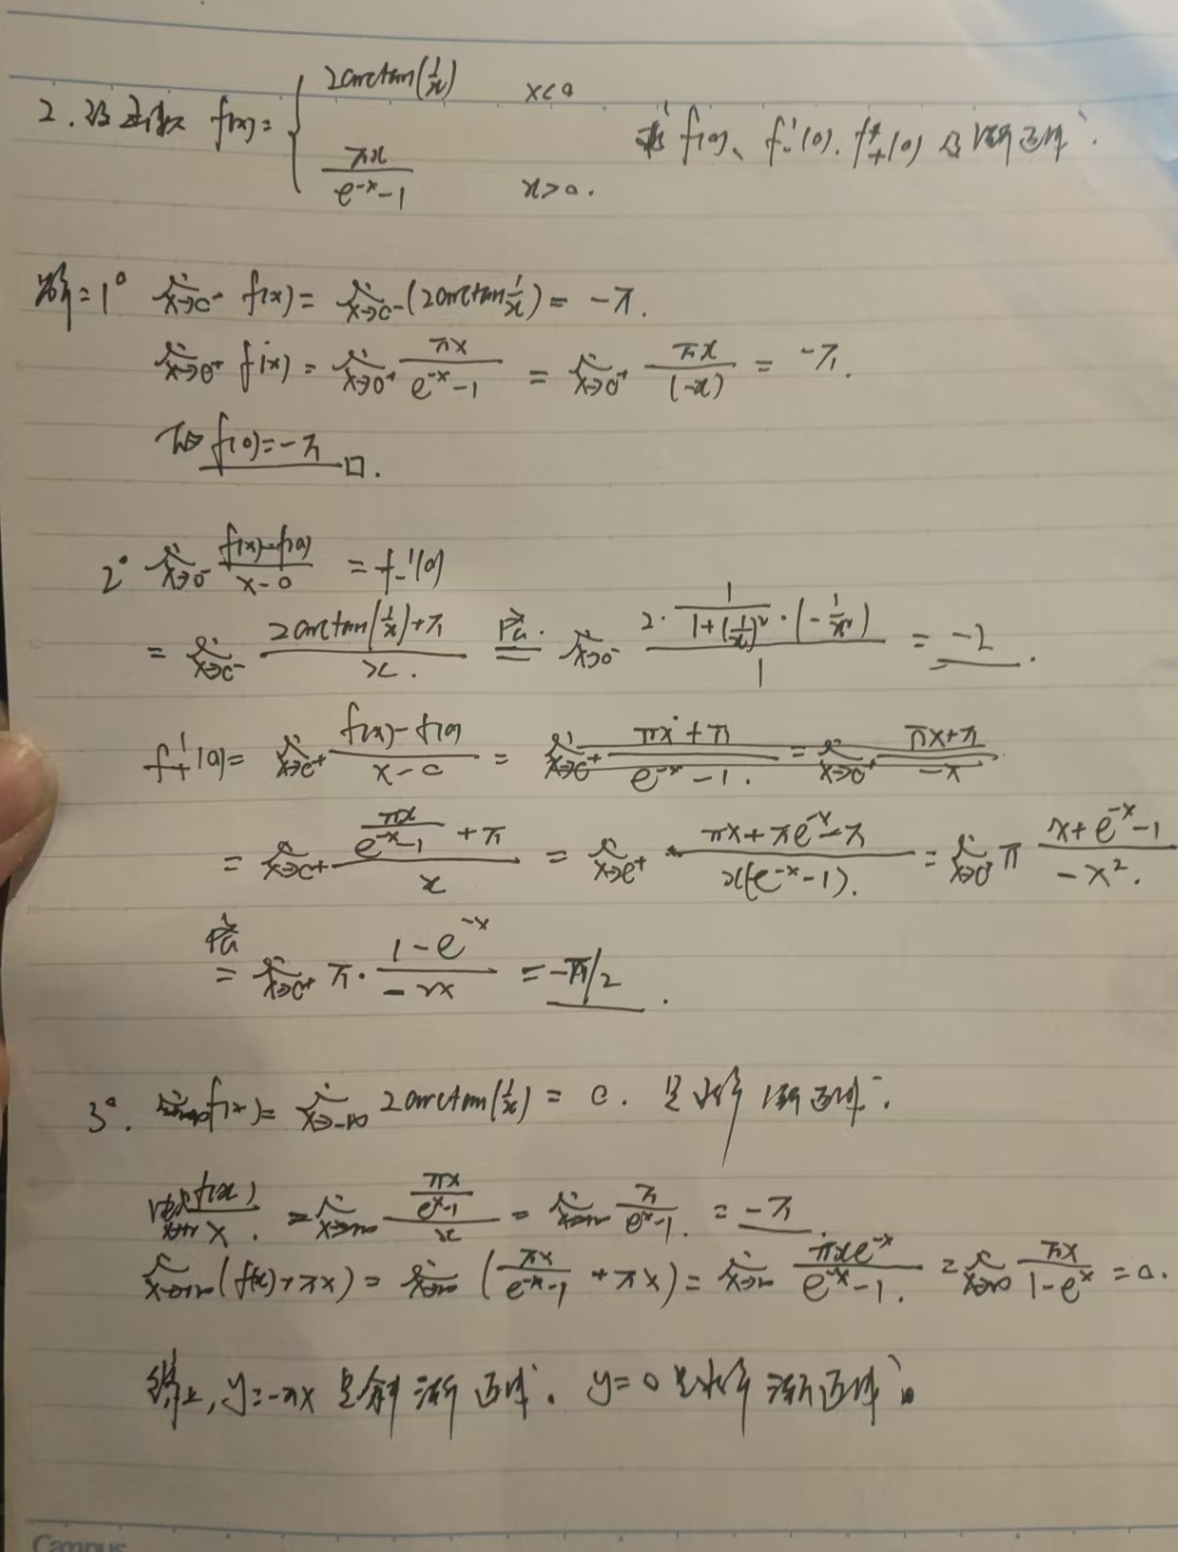 2. 设连续 f(x)= { 2arctan(1/x) x<0
πx/(e^{-x}-1) x>0.
求 f(0)、f'₋(0)、f'₊(0) 及渐近线.
解: 1° lim_{x→0⁻} f(x) = lim_{x→0⁻} (2arctan 1/x) = -π.
lim_{x→0⁺} f(x) = lim_{x→0⁺} πx/(e^{-x}-1) = lim_{x→0⁺} πx/(-x) = -π.
f(0)=-π □.
2° lim_{x→0⁻} (f(x)-f(0))/(x-0) = f₋'(0)
= lim_{x→0⁻} (2arctan(1/x)+π)/x. 洛 = lim_{x→0⁻} (2·1/(1+(1/x)²)·(-1/x²))/1 = -2.
f₊'(0) = lim_{x→0⁺} (f(x)-f(0))/(x-0) = lim_{x→0⁺} (πx+π)/(e^{-x}-1). = lim_{x→0⁺} (πx+π)/(-x)
= lim_{x→0⁺} (πx/(e^{-x}-1) + π)/x = lim_{x→0⁺} (πx+πe^{-x}-π)/(x(e^{-x}-1)). = lim_{x→0⁺} π (x+e^{-x}-1)/(-x²).
洛 = lim_{x→0⁺} π·(1-e^{-x})/(-2x) = -π/2.
3°. f(x) = lim_{x→-∞} 2arctan(1/x) = 0. 是水平渐近线.
f(x)/x. = lim_{x→+∞} (πx/(e^{-x}-1))/x = lim_{x→+∞} π/(e^{-x}-1). = -π.
lim_{x→+∞} (f(x)+πx) = lim_{x→∞} (πx/(e^{-x}-1) + πx) = lim_{x→∞} πxe^{-x}/(e^{-x}-1). = lim_{x→∞} πx/(1-e^x) = 0.
综上, y=-πx 是斜渐近线. y=0 是水平渐近线.
Campus